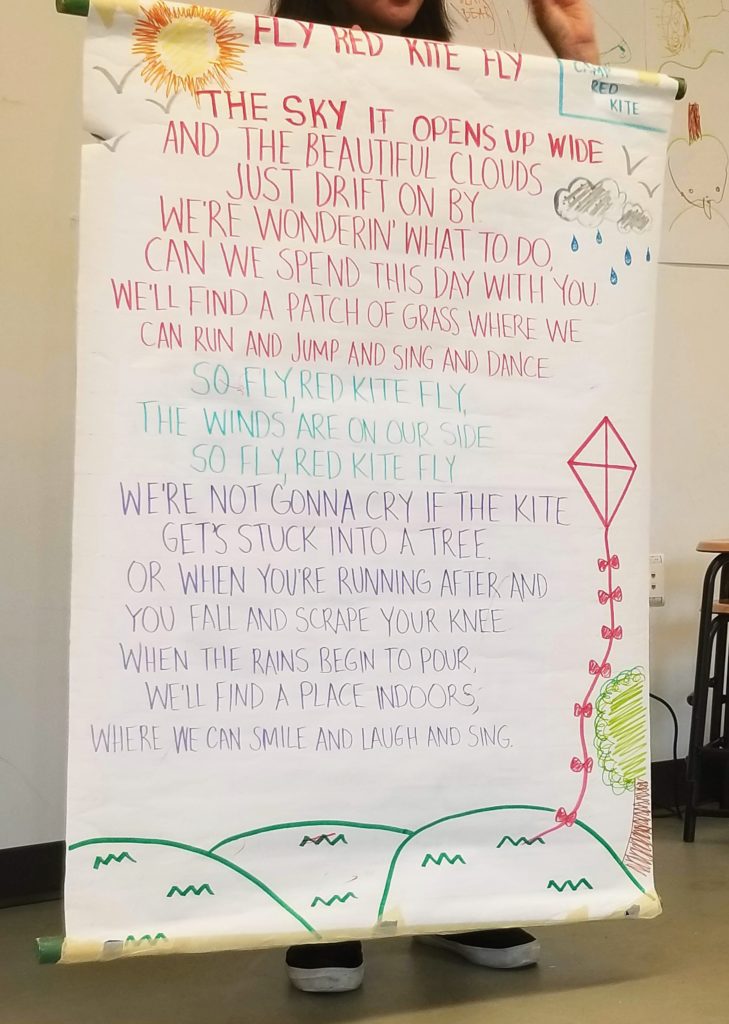 FLY RED KITE FLY
CAMP
RED
KITE
THE SKY IT OPENS UP WIDE
AND THE BEAUTIFUL CLOUDS
JUST DRIFT ON BY.
WE'RE WONDERIN' WHAT TO DO,
CAN WE SPEND THIS DAY WITH YOU.
WE'LL FIND A PATCH OF GRASS WHERE WE
CAN RUN AND JUMP AND SING AND DANCE
SO FLY, RED KITE FLY,
THE WINDS ARE ON OUR SIDE
SO FLY, RED KITE FLY
WE'RE NOT GONNA CRY IF THE KITE
GET'S STUCK INTO A TREE.
OR WHEN YOU'RE RUNNING AFTER AND
YOU FALL AND SCRAPE YOUR KNEE
WHEN THE RAINS BEGIN TO POUR,
WE'LL FIND A PLACE INDOORS,
WHERE WE CAN SMILE AND LAUGH AND SING.